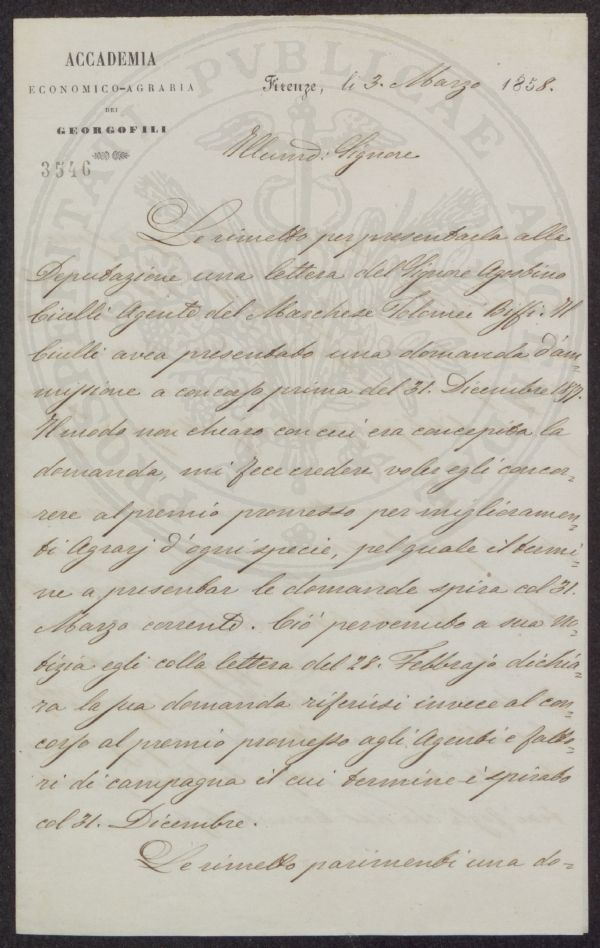 ACCADEMIA
ECONOMICO-AGRARIA
DEI
GEORGOFILI
3546
Firenze, li 3. Marzo 1858.
Illumo: Signore
Le rimetto per presentarla alla
Deputazione una lettera del Signore Agostino
Ciulli Agente del Marchese Tolomei Biffi. Il
Ciulli avea presentato una domanda d'am-
missione a concorso prima del 31. Dicembre 1857.
Il modo non chiaro con cui era concepita la
domanda, mi fece credere voler egli concor-
rere al premio promesso per miglioramen-
ti Agrarj d'ogni specie, pel quale il termi-
ne a presentar le domande spira col 31.
Marzo corrente. Ciò pervenuto a sua no-
tizia egli colla lettera del 28. Febbrajo dichia-
ra la sua domanda riferirsi invece al con-
corso al premio promesso agli Agenti e fatto-
ri di campagna il cui termine è spirato
col 31. Dicembre.
Le rimetto parimenti una do-